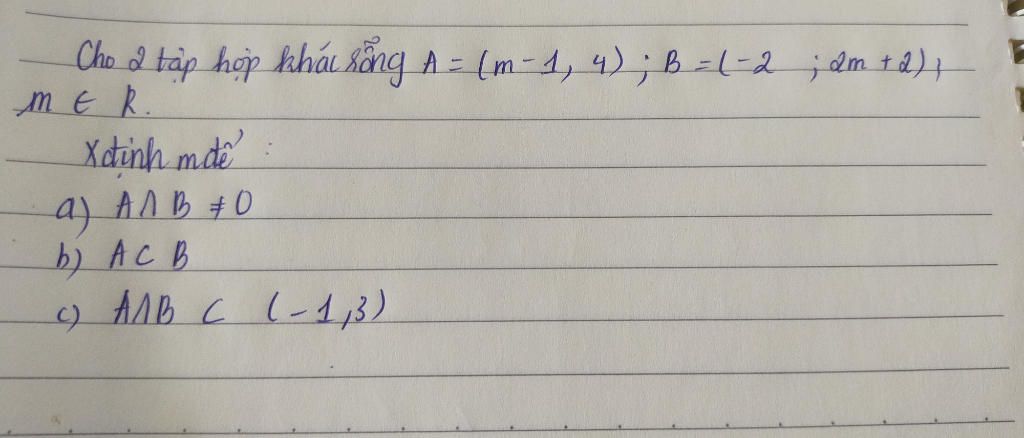 Cho 2 tập hợp khác rỗng A = (m-1, 4) ; B = (-2 ; 2m + 2) ;
m ∈ R.
Xđịnh m để :
a) A∩B ≠ 0
b) A⊂B
c) A∩B ⊂ (-1,3)